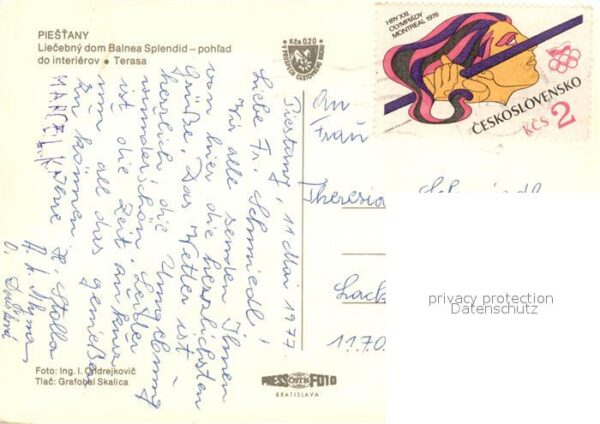 PIEŠŤANY
Liečebný dom Balnea Splendid – pohľad
do interiérov • Terasa
Kčs 0,20
HRY XXI.
OLYMPIÁDY
MONTREAL 1976
ČESKOSLOVENSKO
Kčs 2
Piestany, 11 Mai 1977
Liebe Fr. Schmiedl!
Wir alle senden Ihnen
von hier die herzlichsten
Grüße. Das Wetter ist
herrlich, die Umgebung
wunderschön. Leider
ist die Zeit zu kurz
um all das genießen
zu können.
Ihre
An
Frau
Theresia Schmiedl
1170
privacy protection
Datenschutz
Foto: Ing. I. Ondrejkovič
Tlač: Grafobal Skalica
PRESSFOTO
BRATISLAVA